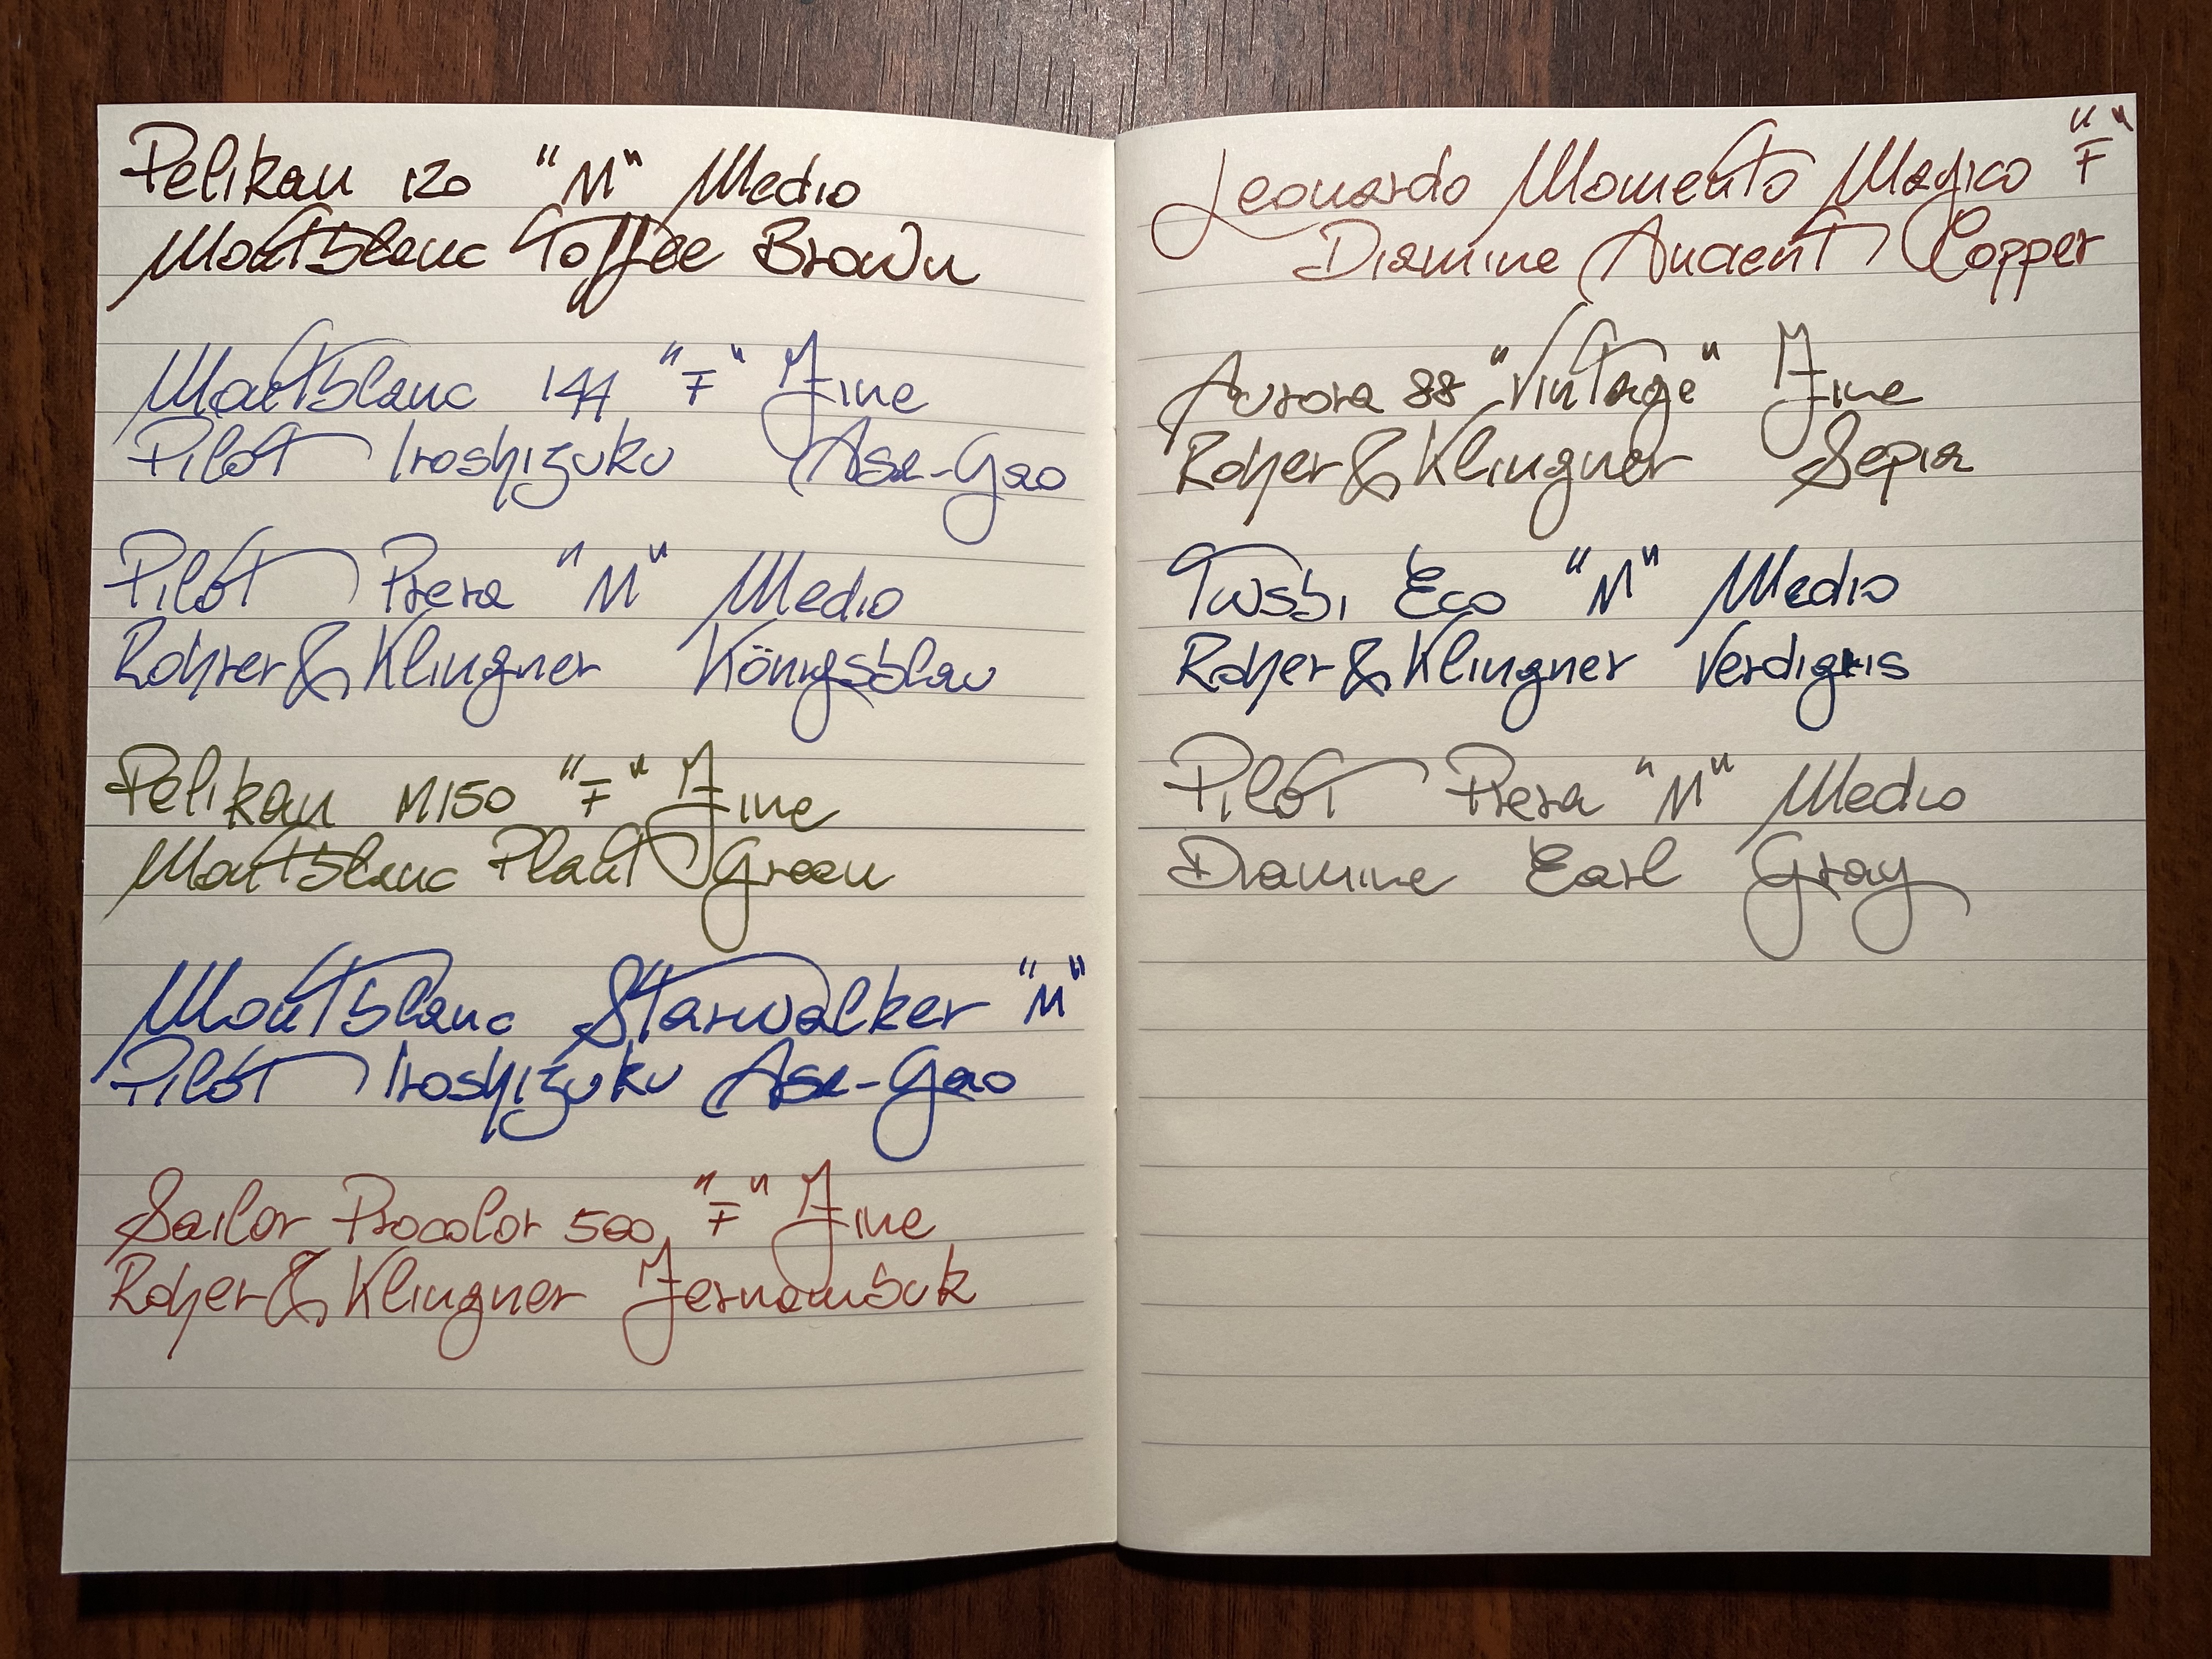 Pelikan 120 "M" Medio
Montblanc Toffee Brown
Montblanc 144 "F" Fine
Pilot Iroshizuku Asa-Gao
Pilot Prera "M" Medio
Rohrer & Klingner Königsblau
Pelikan M150 "F" Fine
Montblanc Plant Green
Montblanc Starwalker "M"
Pilot Iroshizuku Asa-Gao
Sailor Procolor 500 "F" Fine
Roher & Klingner Fernambuk
Leonardo Momento Magico "F"
Diamine Ancient Copper
Aurora 88 "Vintage" Fine
Roher & Klingner Sepia
Twsbi Eco "M" Medio
Roher & Klingner Verdigris
Pilot Prera "M" Medio
Diamine Earl Gray